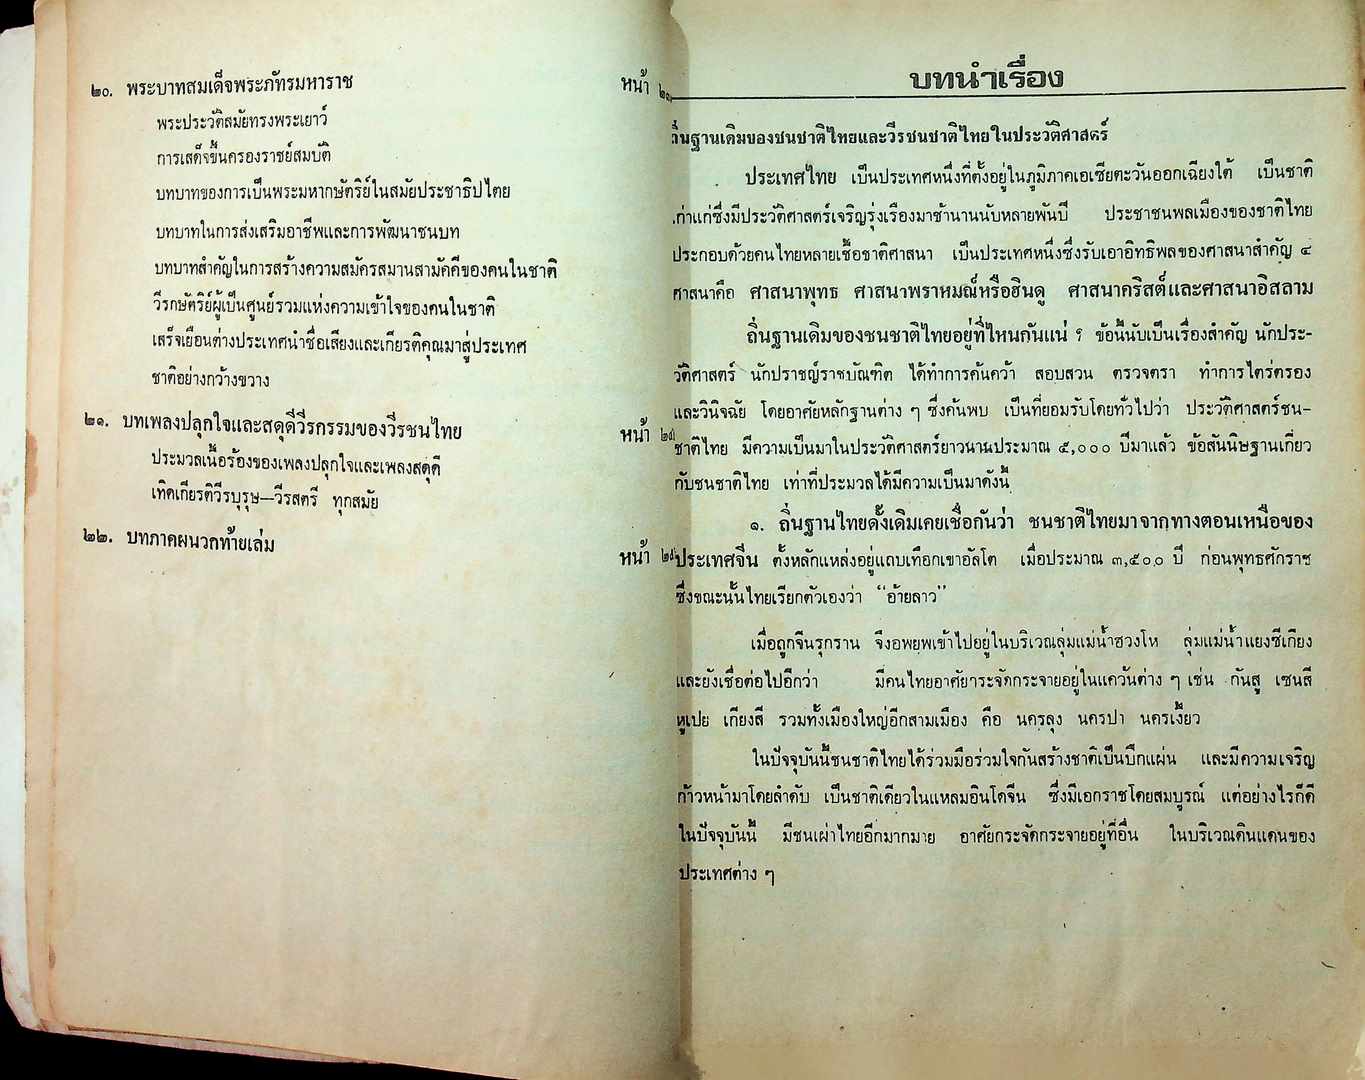 ๒๐. พระบาทสมเด็จพระภัทรมหาราช หน้า
พระประวัติสมัยทรงพระเยาว์
การเสด็จขึ้นครองราชย์สมบัติ
บทบาทของการเป็นพระมหากษัตริย์ในสมัยประชาธิปไตย
บทบาทในการส่งเสริมอาชีพและการพัฒนาชนบท
บทบาทสำคัญในการสร้างความสมัครสมานสามัคคีของคนในชาติ
วีรกษัตริย์ผู้เป็นศูนย์รวมแห่งความเข้าใจของคนในชาติ
เสร็จเยือนต่างประเทศนำชื่อเสียงและเกียรติคุณมาสู่ประเทศ
ชาติอย่างกว้างขวาง
๒๑. บทเพลงปลุกใจและสดุดีวีรกรรมของวีรชนไทย หน้า
ประมวลเนื้อร้องของเพลงปลุกใจและเพลงสดุดี
เทิดเกียรติวีรบุรุษ—วีรสตรี ทุกสมัย
๒๒. บทภาคผนวกท้ายเล่ม หน้า
บทนำเรื่อง
ถิ่นฐานเดิมของชนชาติไทยและวีรชนชาติไทยในประวัติศาสตร์
ประเทศไทย เป็นประเทศหนึ่งที่ตั้งอยู่ในภูมิภาคเอเซียตะวันออกเฉียงใต้ เป็นชาติ
เก่าแก่ซึ่งมีประวัติศาสตร์เจริญรุ่งเรืองมาช้านานนับหลายพันปี ประชาชนพลเมืองของชาติไทย
ประกอบด้วยคนไทยหลายเชื้อชาติศาสนา เป็นประเทศหนึ่งซึ่งรับเอาอิทธิพลของศาสนาสำคัญ ๔
ศาสนาคือ ศาสนาพุทธ ศาสนาพราหมณ์หรือฮินดู ศาสนาคริสต์และศาสนาอิสลาม
ถิ่นฐานเดิมของชนชาติไทยอยู่ที่ไหนกันแน่ ? ข้อนี้นับเป็นเรื่องสำคัญ นักประ-
วัติศาสตร์ นักปราชญ์ราชบัณฑิต ได้ทำการค้นคว้า สอบสวน ตรวจตรา ทำการไตร่ตรอง
และวินิจฉัย โดยอาศัยหลักฐานต่าง ๆ ซึ่งค้นพบ เป็นที่ยอมรับโดยทั่วไปว่า ประวัติศาสตร์ชน-
ชาติไทย มีความเป็นมาในประวัติศาสตร์ยาวนานประมาณ ๕,๐๐๐ ปีมาแล้ว ข้อสันนิษฐานเกี่ยว
กับชนชาติไทย เท่าที่ประมวลได้มีความเป็นมาดังนี้
๑. ถิ่นฐานไทยดั้งเดิมเคยเชื่อกันว่า ชนชาติไทยมาจากทางตอนเหนือของ
ประเทศจีน ตั้งหลักแหล่งอยู่แถบเทือกเขาอัลไต เมื่อประมาณ ๓,๕๐๐ ปี ก่อนพุทธศักราช
ซึ่งขณะนั้นไทยเรียกตัวเองว่า “อ้ายลาว”
เมื่อถูกจีนรุกราน จึงอพยพเข้าไปอยู่ในบริเวณลุ่มแม่น้ำฮวงโห ลุ่มแม่น้ำแยงซีเกียง
และยังเชื่อต่อไปอีกว่า มีคนไทยอาศัยกระจัดกระจายอยู่ในแคว้นต่าง ๆ เช่น กันสู เซนสี
หูเปย เกียงสี รวมทั้งเมืองใหญ่อีกสามเมือง คือ นครลุง นครปา นครเงี้ยว
ในปัจจุบันนี้ชนชาติไทยได้ร่วมมือร่วมใจกันสร้างชาติเป็นปึกแผ่น และมีความเจริญ
ก้าวหน้ามาโดยลำดับ เป็นชาติเดียวในแหลมอินโดจีน ซึ่งมีเอกราชโดยสมบูรณ์ แต่อย่างไรก็ดี
ในปัจจุบันนี้ มีชนเผ่าไทยอีกมากมาย อาศัยกระจัดกระจายอยู่ที่อื่น ในบริเวณดินแดนของ
ประเทศต่าง ๆ